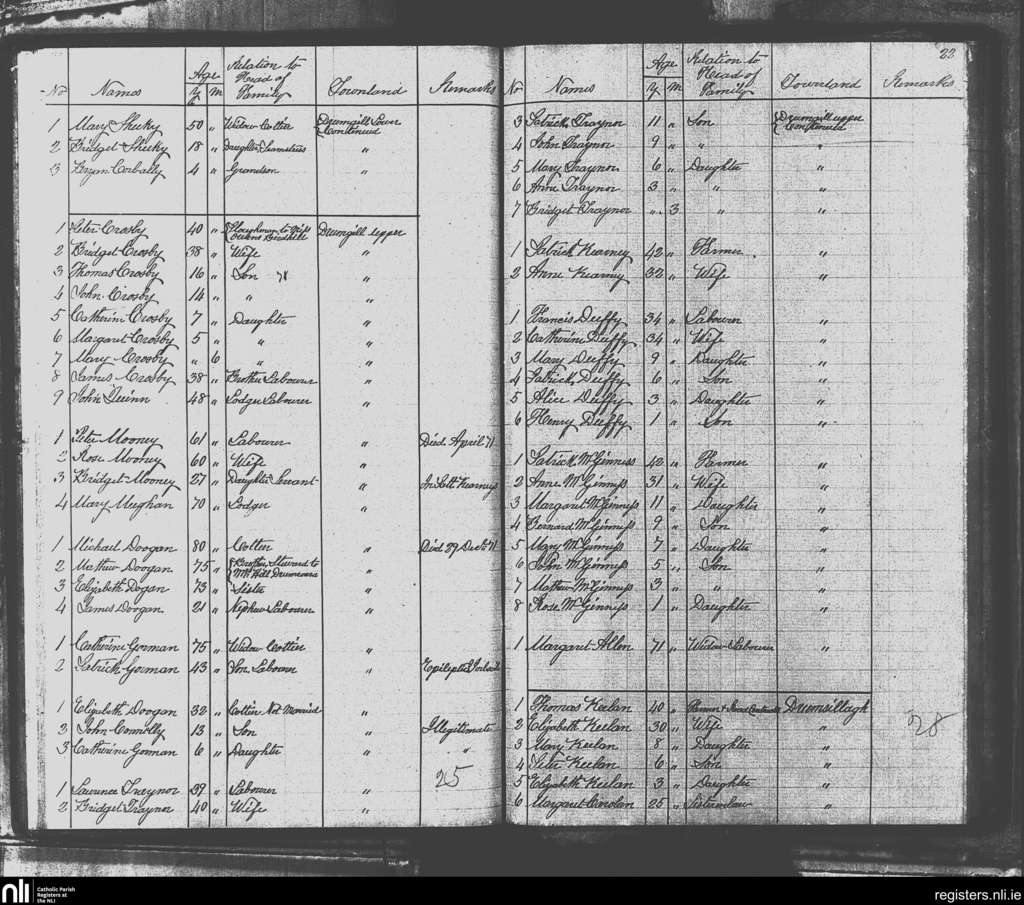 No Names Age Y M Relation to Head of Family Townland Remarks
1 Mary Sheeky 50 " Widow Cottier Drumgill Lower Continued
2 Bridget Sheeky 18 " Daughter Seamstress "
3 Bryan Corbally 4 " Grandson "
1 Peter Crosby 40 " Ploughman to Miss Owens Drumgill upper
2 Bridget Crosby 38 " Wife "
3 Thomas Crosby 16 " Son "
4 John Crosby 14 " " "
5 Catherine Crosby 7 " Daughter "
6 Margaret Crosby 5 " " "
7 Mary Crosby " 6 " "
8 James Crosby 38 " Brother Labourer "
9 John Quinn 48 " Lodger Labourer "
1 Peter Mooney 61 " Labourer " Died April 71
2 Rose Mooney 60 " Wife "
3 Bridget Mooney 27 " Daughter Servant " In Patt Kearneys
4 Mary Meeghan 70 " Lodger "
1 Michael Doogan 80 " Cottier " Died 29 Decbr 71
2 Mathew Doogan 75 " Brother Steward to Mr Hill Drumrora "
3 Elizabeth Dogan 73 " Sister "
4 James Doogan 21 " Nephew Labourer "
1 Catherine Gorman 75 " Widow Cottier "
2 Patrick Gorman 43 " Son Labourer " Epileptic
1 Elizabeth Doogan 32 " Cottier Not Married "
2 John Connolly 13 " Son " Illegitimate
3 Catherine Gorman 6 " Daughter " "
25
1 Laurence Traynor 39 " Labourer "
2 Bridget Traynor 40 " Wife "
22
No Names Age Y M Relation to Head of Family Townland Remarks
3 Patrick Traynor 11 " Son Drumgill upper Continued
4 John Traynor 9 " " "
5 Mary Traynor 6 " Daughter "
6 Anne Traynor 3 " " "
7 Bridget Traynor " 3 " "
1 Patrick Kearney 42 " Farmer "
2 Anne Kearney 32 " Wife "
1 Francis Duffy 34 " Labourer "
2 Catherine Duffy 34 " Wife "
3 Mary Duffy 9 " Daughter "
4 Patrick Duffy 6 " Son "
5 Alice Duffy 3 " Daughter "
6 Henry Duffy 1 " Son "
1 Patrick McGinness 42 " Farmer "
2 Anne McGinness 31 " Wife "
3 Margaret McGinness 11 " Daughter "
4 Bernard McGinness 9 " Son "
5 Mary McGinness 7 " Daughter "
6 John McGinness 5 " Son "
7 Mathew McGinness 3 " " "
8 Rose McGinness 1 " Daughter "
1 Margaret Allen 71 " Widow Labourer "
1 Thomas Keelan 40 " Farmer & Road Contractor Drumsillagh
2 Elizabeth Keelan 30 " Wife "
28
3 Mary Keelan 8 " Daughter "
4 Peter Keelan 6 " Son "
5 Elizabeth Keelan 3 " Daughter "
6 Margaret Carolan 25 " Sisterinlaw "
nli Catholic Parish Registers at the NLI
registers.nli.ie